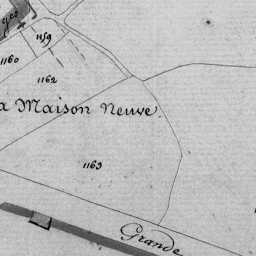 1159
1160
1162
a Maison Neuve.
1163
Grande